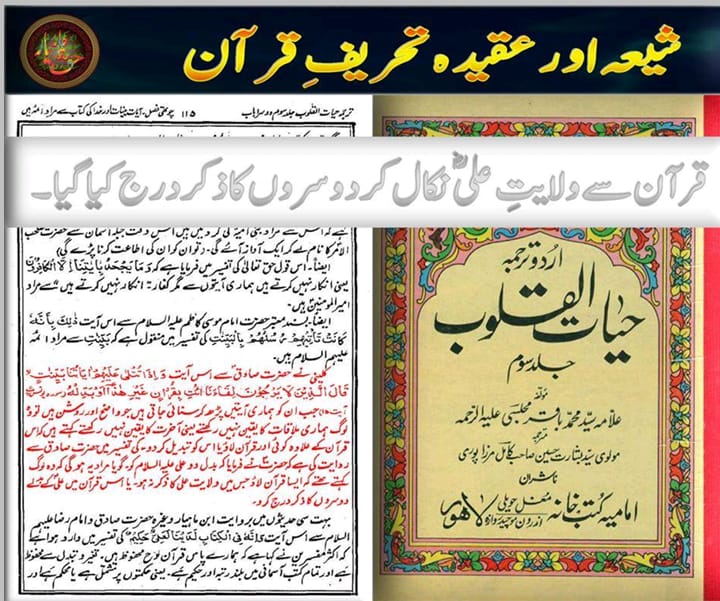 شیعہ اور عقیدہ تحریفِ قرآن
ترجمہ حیات القلوب جلد سوم دوسرا باب ۱۱۵ چوتھی فصل۔ آیات بینات اور خدا کی کتاب سے مراد ائمہ ہیں
قرآن سے ولایتِ علیؓ نکال کر دوسروں کا ذکر درج کیا گیا۔
الامر کا نام لے کر ایک آواز آئے گی۔ تو ان کو ان کی اطاعت کرنا پڑے گی)
ایضاً۔ اس قول حق تعالیٰ کی تفسیر میں فرمایا ہے کہ وَمَا یَجْحَدُ بِاٰیٰتِنَا اِلَّا الْکَافِرُوْنَ
یعنی انکار نہیں کرتے ہیں ہماری آیتوں سے مگر کفار۔ انکار نہیں کرتے ہیں سے مراد
امیر المومنین ہیں۔
ایضاً۔ بسند معتبر حضرت امام موسیٰ کاظم علیہ السلام سے اس آیت ذٰلِکَ بِاَنَّہٗ
کَانَتْ تَّاْتِیْہِمْ رُسُلُہُمْ بِالْبَیِّنٰتِ کی تفسیر میں منقول ہے کہ بینات سے مراد ائمہ
علیہم السلام ہیں۔
کلینی نے حضرت صادق سے اس آیت وَاِذَا تُتْلٰی عَلَیْہِمْ اٰیَاتُنَا بَیِّنٰتٍ
قَالَ الَّذِیْنَ لَا یَرْجُوْنَ لِقَآءَنَا ائْتِ بِقُرْاٰنٍ غَیْرِ ھٰذَا اَوْ بَدِّلْہُ
جب ان کو ہماری آیتیں پڑھ کر سنائی جاتی ہیں جو واضح اور روشن ہیں تو وہ
لوگ ہماری ملاقات کا یقین نہیں رکھتے یعنی آخرت کا یقین نہیں رکھتے کہتے ہیں کہ اس
قرآن کے علاوہ کوئی اور قرآن لاؤ یا اس کو تبدیل کر دو۔ کی تفسیر میں حضرت صادق سے
روایت کی ہے کہ حضرت نے فرمایا کہ بدل دو علی علیہ السلام کو۔ گویا مراد یہ ہو گی کہ وہ لوگ
کہتے تھے کہ ایسا قرآن لاؤ جس میں ولایت علی کا ذکر نہ ہو۔ یا اس قرآن میں علی کے بدلے
دوسروں کا ذکر درج کرو۔
بہت سی حدیثوں میں بروایت ابن ماہیار وغیرہ حضرت صادق و امام رضا علیہم
السلام سے اس آیت وَاِنَّہٗ فِیْ اُمِّ الْکِتٰبِ لَدَیْنَا لَعَلِیٌّ حَکِیْمٌ کی تفسیر میں وارد ہوا ہے
کہ اکثر مفسرین نے کہا ہے کہ ہمارے پاس قرآن لوح محفوظ میں۔ تغیر و تبدل سے محفوظ
ہے اور تمام کتب آسمانی میں بلند مرتبہ اور حکیم ہے۔ یعنی حکمتوں پر مشتمل ہے یا محکم ہے اور
اردو ترجمہ
حیات القلوب
جلد سوم
مؤلفہ
علامہ سید محمد باقر مجلسی علیہ الرحمہ
مترجمہ
مولوی سید بشارت حسین صاحب کامل مرزا پوری
ناشران
امامیہ کتب خانہ
مغل حویلی
اندرون موچیدروازہ
لاہور